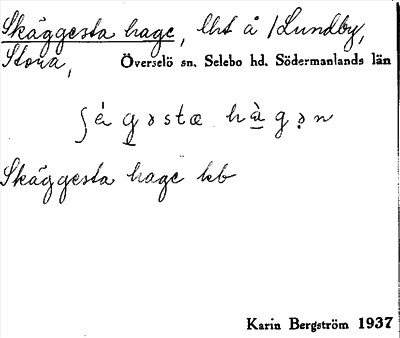 Skäggesta hage, lht å /Lundby,
Stora, Överselö sn. Selebo hd. Södermanlands län
ʃégəstæ hàgən
Skäggesta hage kb
Karin Bergström 1937